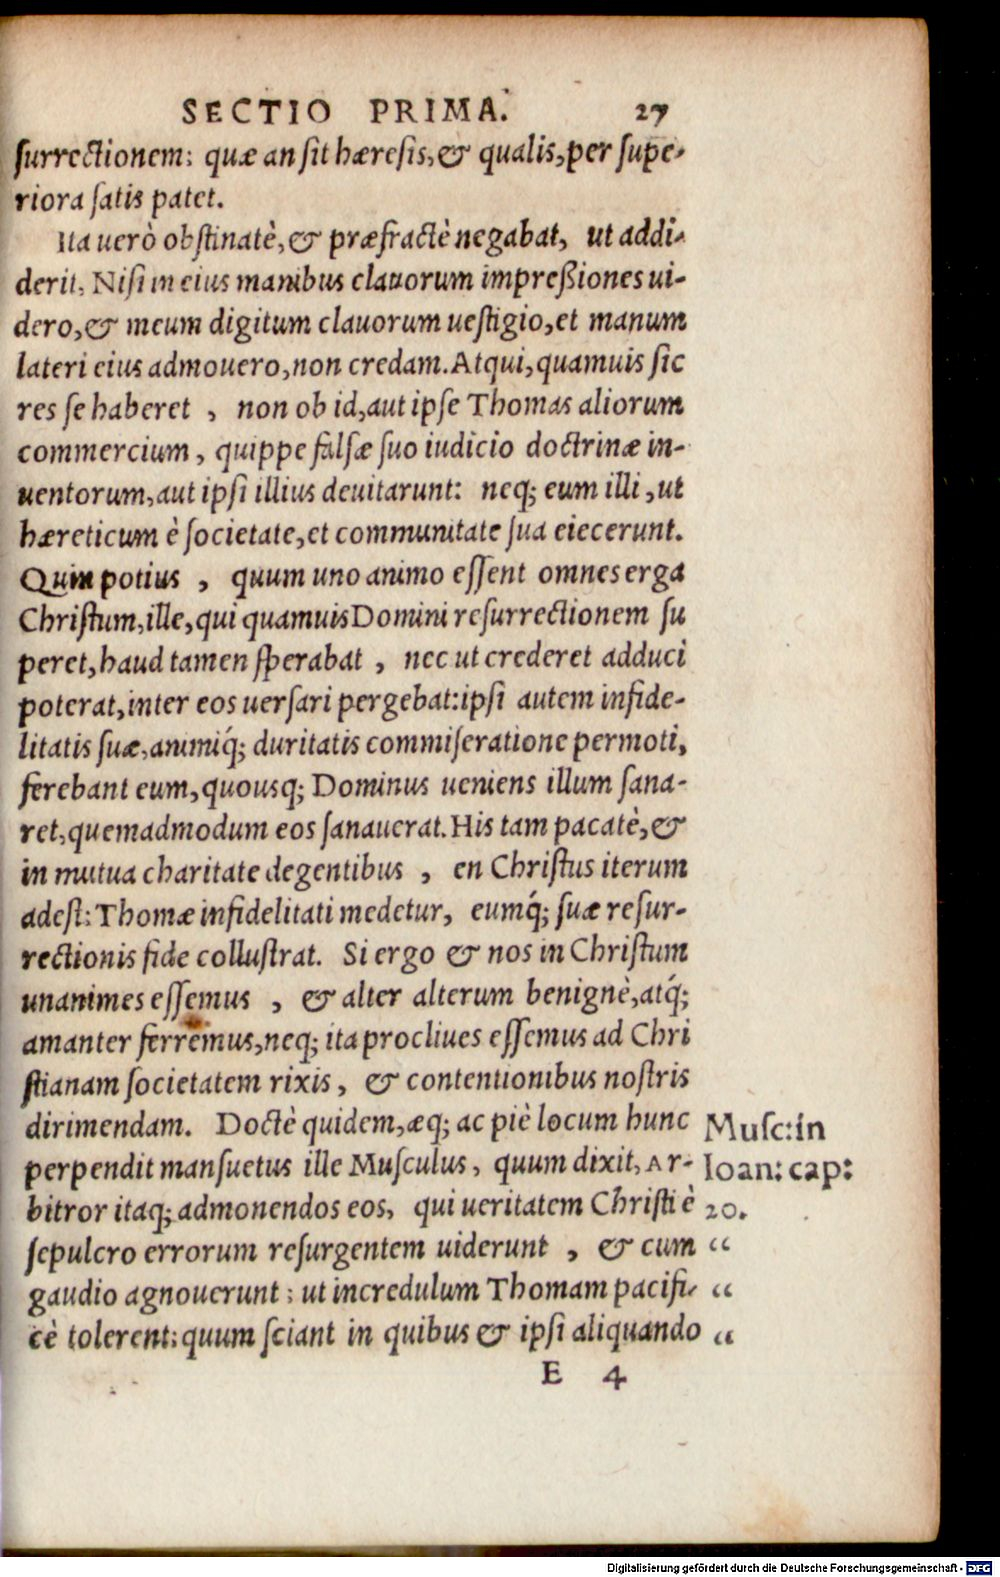 SECTIO PRIMA. 27
ſurrectionem: quæ an ſit hæreſis, & qualis, per ſupe-
riora ſatis patet.
Ita uerò obſtinatè, & præfractè negabat, ut addi-
derit, Niſi in eius manibus clauorum impreßiones ui-
dero, & meum digitum clauorum ueſtigio, et manum
lateri eius admouero, non credam. Atqui, quamuis ſic
res ſe haberet , non ob id, aut ipſe Thomas aliorum
commercium, quippe falſæ ſuo iudicio doctrinæ in-
uentorum, aut ipſi illius deuitarunt: neq; eum illi, ut
hæreticum è ſocietate, et communitate ſua eiecerunt.
Quin potius , quum uno animo eſſent omnes erga
Chriſtum, ille, qui quamuis Domini reſurrectionem ſu
peret, haud tamen ſperabat , nec ut crederet adduci
poterat, inter eos uerſari pergebat: ipſi autem infide-
litatis ſuæ, animiq́; duritatis commiſeratione permoti,
ferebant eum, quouſq; Dominus ueniens illum ſana-
ret, quemadmodum eos ſanauerat. His tam pacatè, &
in mutua charitate degentibus , en Chriſtus iterum
adeſt: Thomæ infidelitati medetur, eumq́; ſuæ reſur-
rectionis fide colluſtrat. Si ergo & nos in Chriſtum
unanimes eſſemus , & alter alterum benignè, atq́;
amanter ferremus, neq; ita procliues eſſemus ad Chri
ſtianam ſocietatem rixis, & contentionibus noſtris
dirimendam. Doctè quidem, æq; ac piè locum hunc
perpendit manſuetus ille Muſculus, quum dixit, Ar-
bitror itaq; admonendos eos, qui ueritatem Chriſti è
ſepulcro errorum reſurgentem uiderunt , & cum
gaudio agnouerunt: ut incredulum Thomam pacifi-
cè tolerent: quum ſciant in quibus & ipſi aliquando
Muſc: in
Ioan: cap:
20.
“
“
“
E 4
Digitalisierung gefördert durch die Deutsche Forschungsgemeinschaft - DFG